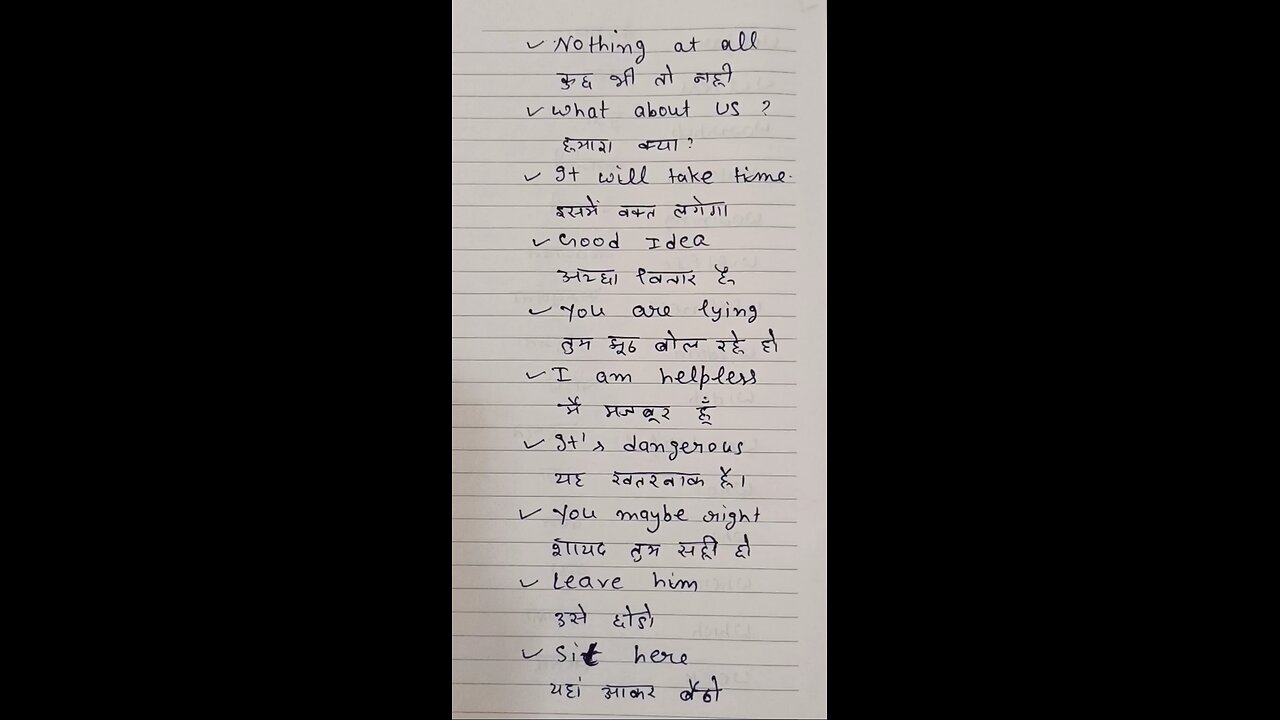 ✓ Nothing at all
कुछ भी तो नही
✓ What about us ?
हमारा क्या?
✓ It will take time.
इसमें वक्त लगेगा
✓ Good Idea
अच्छा विचार है
✓ You are lying
तुम झूठ बोल रहे हो
✓ I am helpless
मै मजबूर हूँ
✓ It's dangerous
यह खतरनाक है।
✓ You maybe right
शायद तुम सही हो
✓ Leave him
उसे छोडो
✓ Sit here
यहां आकर बैठो